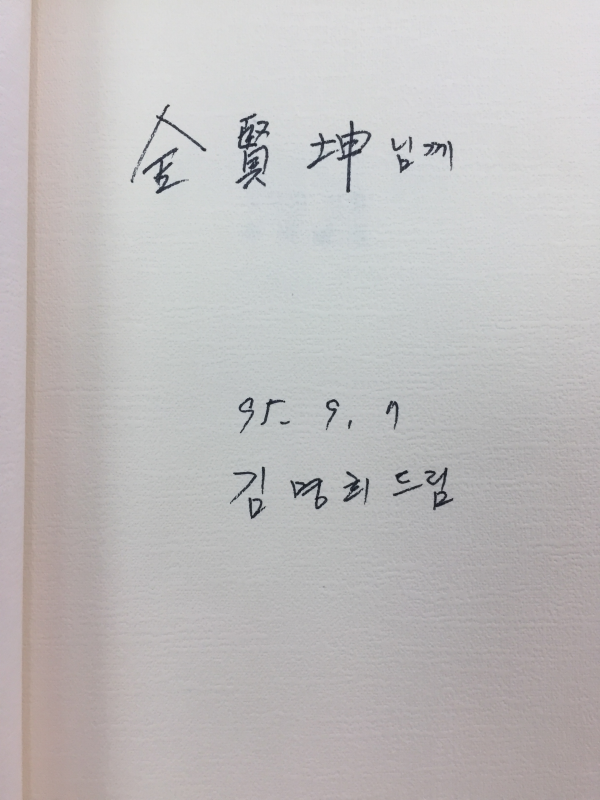 金賢坤 님께
95. 9. 7
김명희 드림